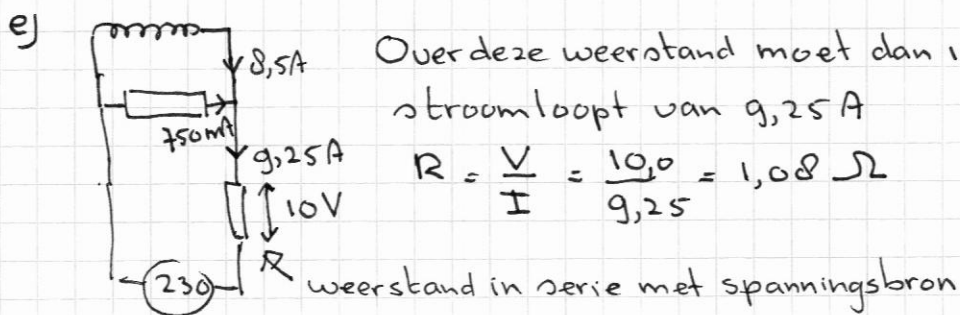 e)
8,5A
750mA
9,25A
10V
R
230
Over deze weerstand moet dan
stroomloopt van 9,25 A
R = V/I = 10,0/9,25 = 1,08 Ω
weerstand in serie met spanningsbron